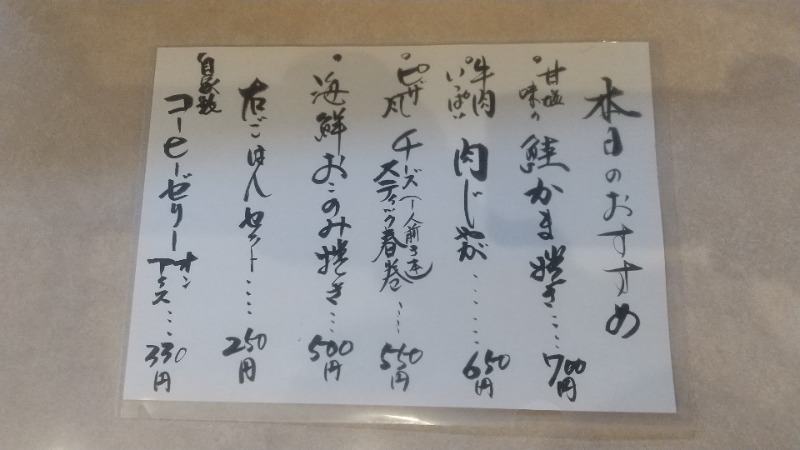 本日のおすすめ
・甘塩味の 鮭かま焼き…. 700円
・牛肉いっぱい 肉じゃが...... 650円
・ピザ風 チーズスティック春巻(一人前3本)…. 550円
・海鮮おこのみ焼き… 500円
右ごはんセット.... 250円
・自家製 コーヒーゼリーオンアイス… 330円